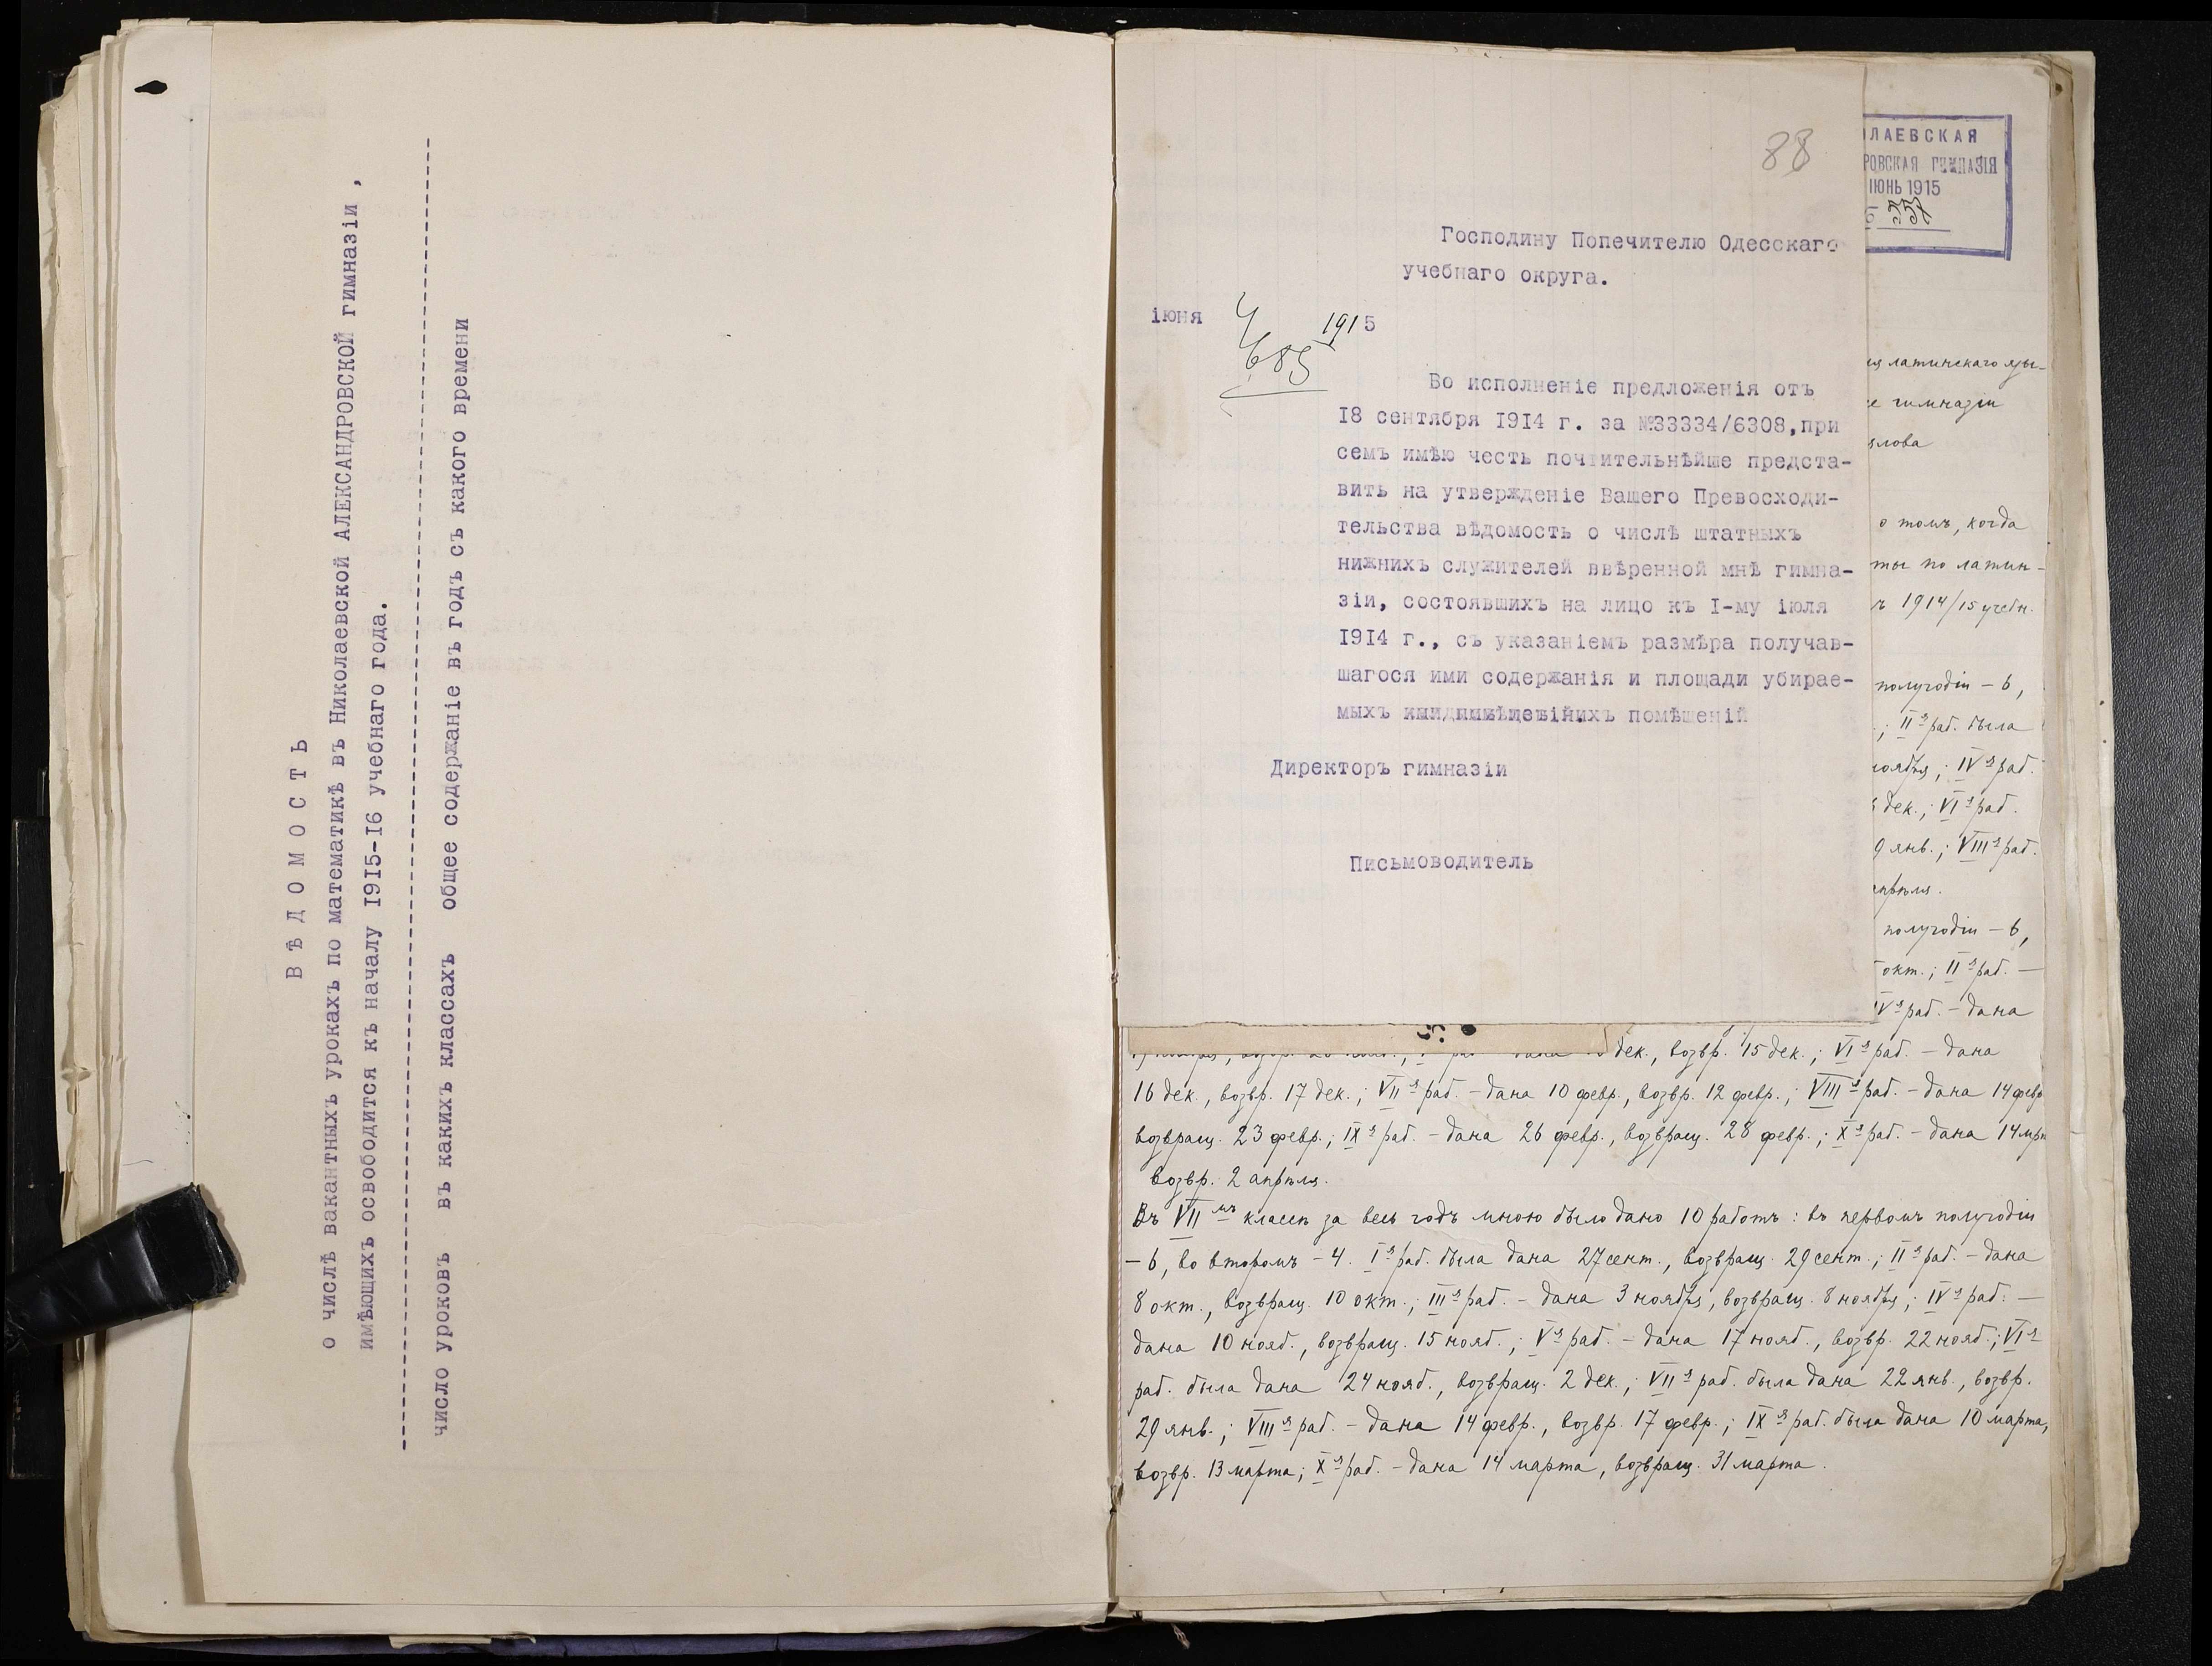 ВѢДОМОСТЬ
о числѣ вакантныхъ урокахъ по математикѣ въ Николаевской АЛЕКСАНДРОВСКОЙ гимназіи ,
имѣющихъ освободится къ началу 1915-16 учебнаго года.
число уроковъ въ какихъ классахъ общее содержаніе въ годъ съ какого времени
88
Господину Попечителю Одесскаго
учебнаго округа.
іюня 4 1915
685
Во исполненіе предложенія отъ
18 сентября 1914 г. за №33334/6308,при
семъ имѣю честь почтительнѣйше предста-
вить на утвержденіе Вашего Превосходи-
тельства вѣдомость о числѣ штатныхъ
нижнихъ служителей ввѣренной мнѣ гимна-
зіи, состоявшихъ на лицо къ I-му іюля
1914 г., съ указаніемъ размѣра получав-
шагося ими содержанія и площади убирае-
мыхъ помѣщеній
Директоръ гимназіи
Письмоводитель
ЛАЕВСКАЯ
РОВСКАЯ ГИМНАЗІЯ
ІЮНЬ 1915
латинскаго язы-
гимназіи
о томъ, когда
ты по латин-
1914/15 учебн.
полугодіи – 6,
; IIя раб. была
ноября; IVя раб.
дек.; VIя раб.
9 янв.; VIIIя раб.
апрѣля.
полугодіи – 6,
окт.; IIя раб. –
IVя раб. – дана
дек., возвр. 15 дек.; VIя раб. – дана
16 дек., возвр. 17 дек.; VIIя раб. – дана 10 февр., возвр. 12 февр.; VIIIя раб. – дана 14 февр
возвращ. 23 февр.; IXя раб. – дана 26 февр., возвращ. 28 февр.; Xя раб. – дана 14 мрт
возвр. 2 апрѣля.
Въ VIIмъ классѣ за весь годъ мною было дано 10 работъ: въ первомъ полугодіи
– 6, во второмъ – 4. Iя раб. была дана 27 сент., возвращ. 29 сент.; IIя раб. – дана
8 окт., возвращ. 10 окт.; IIIя раб. – дана 3 ноября, возвращ. 8 ноября; IVя раб. –
дана 10 нояб., возвращ. 15 нояб.; Vя раб. – дана 17 нояб., возвр. 22 нояб.; VIя
раб. была дана 24 нояб., возвращ. 2 дек.; VIIя раб. была дана 22 янв., возвр.
29 янв.; VIIIя раб. – дана 14 февр., возвр. 17 февр.; IXя раб. была дана 10 марта,
возвр. 13 марта; Xя раб. – дана 14 марта, возвращ. 31 марта.